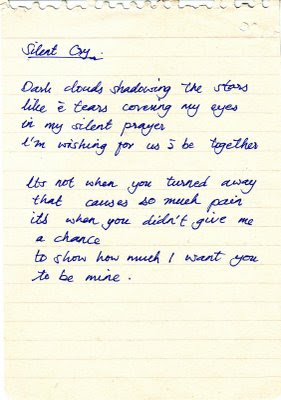 Silent Cry.
Dark clouds shadowing the stars
like ē tears covering my eyes
in my silent prayer
I'm wishing for us ō be together
Its not when you turned away
that causes so much pain
its when you didn't give me
a chance
to show how much I want you
to be mine.